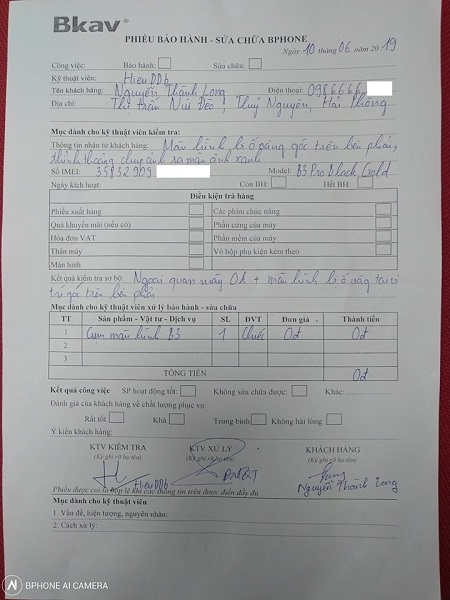 Bkav
PHIẾU BẢO HÀNH - SỬA CHỮA BPHONE
Ngày 10 tháng 06 năm 2019
Công việc: Bảo hành: Sửa chữa:
Kỹ thuật viên: HieuDDb
Tên khách hàng: Nguyễn Thành Long Điện thoại: 0986666
Địa chỉ: Thị trấn Núi Đèo, Thuỷ Nguyên, Hải Phòng
Mục dành cho kỹ thuật viên kiểm tra:
Thông tin nhận từ khách hàng: Màn hình bị ố vàng góc trên bên phải,
thỉnh thoảng chụp ảnh ra màn ảnh xanh
Số IMEI: 35832909 Model: B3 Pro Black Gold
Ngày kích hoạt: Còn BH: Hết BH:
Điều kiện trả hàng
Phiếu xuất hàng Các phím chức năng
Quà khuyến mãi (nếu có) Phần cứng của máy
Hóa đơn VAT Phần mềm của máy
Thân máy Vỏ hộp phụ kiện kèm theo
Màn hình
Kết quả kiểm tra sơ bộ: Ngoại quan máy Ok + màn hình bị ố vàng tại vị
trí góc trên bên phải
Mục dành cho kỹ thuật viên xử lý bảo hành - sửa chữa
TT Sản phẩm - Vật tư - Dịch vụ SL ĐVT Đơn giá Thành tiền
1 Cụm màn hình B3 1 Chiếc 0đ 0đ
2
3
TỔNG TIỀN 0đ
Kết quả công việc SP hoạt động tốt: Không sửa chữa được: Khác:
Đánh giá của khách hàng về chất lượng phục vụ:
Rất tốt Khá Trung bình Không hài lòng
Ý kiến khách hàng:
KTV KIỂM TRA KTV XỬ LÝ KHÁCH HÀNG
(Ký ghi rõ họ tên) (Ký ghi rõ họ tên) (Ký ghi rõ họ tên)
HieuDDb Nguyễn Thành Long
Phiếu được coi là hợp lệ khi các thông tin trên được điền đầy đủ
Mục dành cho kỹ thuật viên
1. Vấn đề, hiện tượng, nguyên nhân:
2. Cách xử lý:
BPHONE AI CAMERA